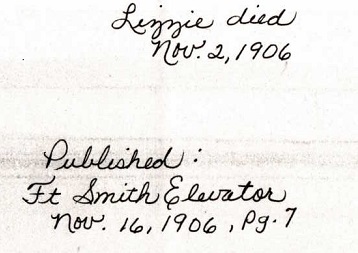 Lizzie died
Nov. 2, 1906
Published :
Ft Smith Elevator
Nov. 16, 1906, Pg. 7